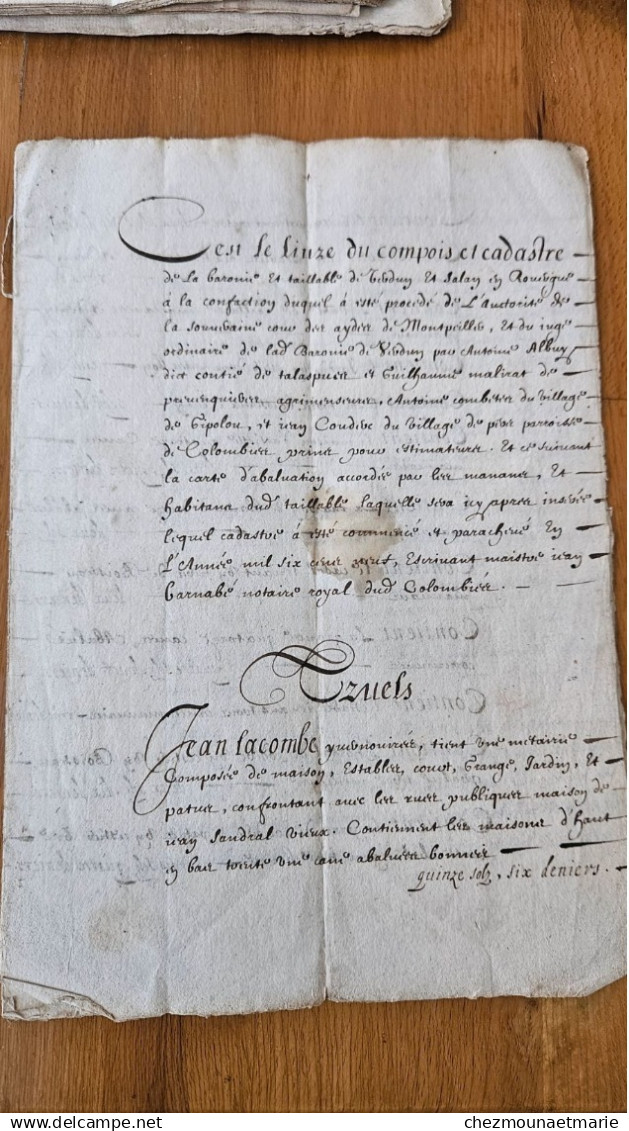 C'est le liure du compois et cadastre
de la baronie et taillable de Verdun et Salan en Rouergue
à la confaction duquel à esté procedé de L'auctorité de
la souueraine cour des aydes de Montpeillier, et du iuge
ordinaire de lad Baronie de Verdun par Antoine Albuy
dict contié de talaspues et Guilhaume malirat de
agrimenseurs, Antoine combettes du village
de et iean Coudere du village de peux parroisse
de Colombiés prins pour estimateurs. Et ce suiuant
la carte d'abaluation accordée par les manans, Et
habitans dud taillable laquelle sera icy apres inserée
lequel cadastre à esté commencé et paracheué En
L'Année mil six cens Escriuant maistre iean
Barnabé notaire royal dud Colombiés.
Tzuels
Jean lacombe tient vne metairie
Composée de maison, Estables, court, Grange, Jardin, Et
patus, confrontant auec les rues publiques maison de
iean Sandral vieux. Contiennent les maisons d'haut
en bas vne cane abaluées bonnes
quinze solz, six deniers.
chezmounaetmarie